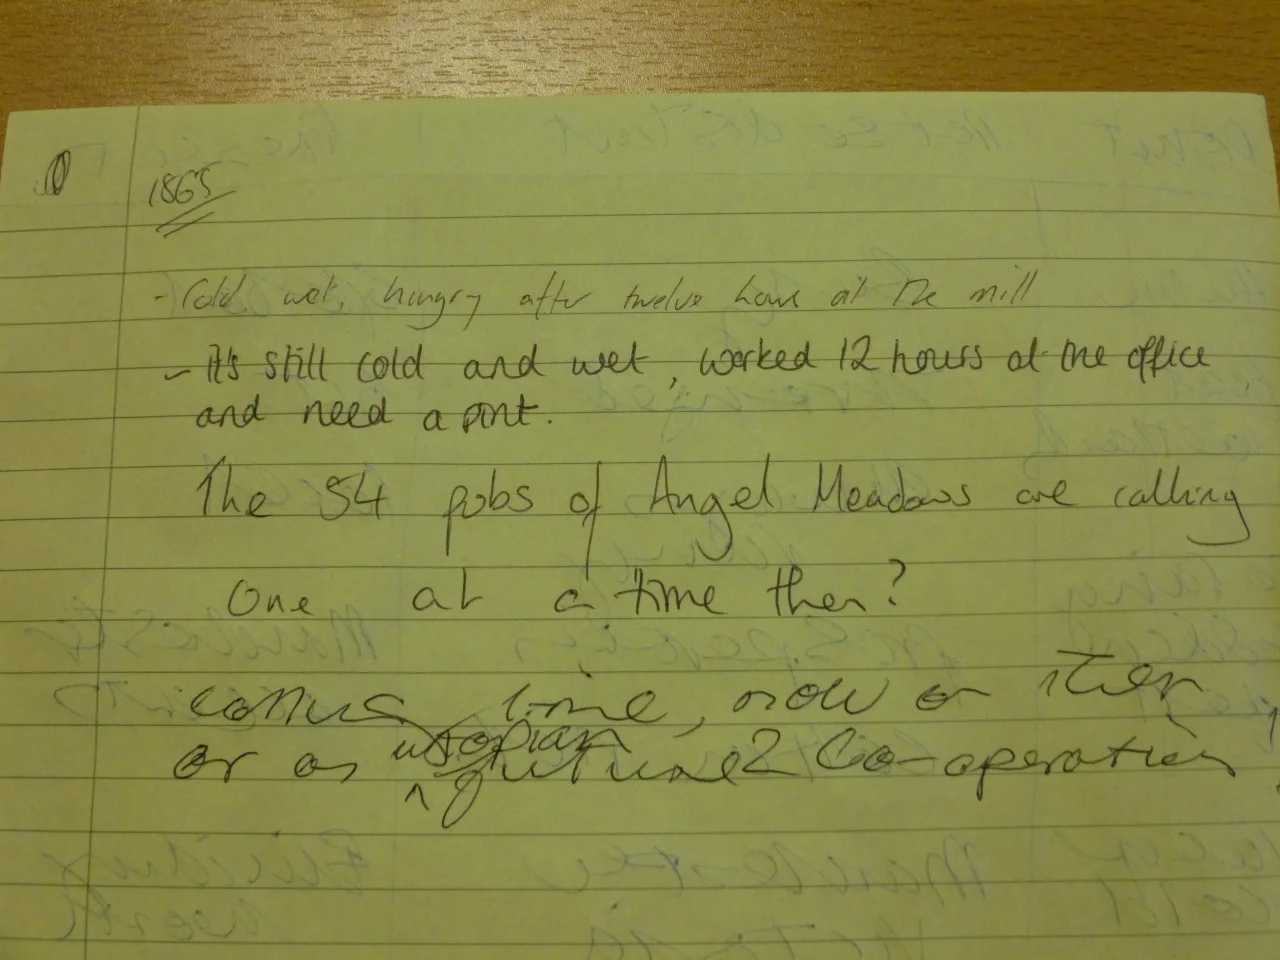 1865
- Cold wet, hungry after twelve hours at the mill
- it's still cold and wet, worked 12 hours at the office
and need a pint.
The 54 pubs of Angel Meadows are calling
One at a time then?
time, now or then
or an utopian future? Co-operation